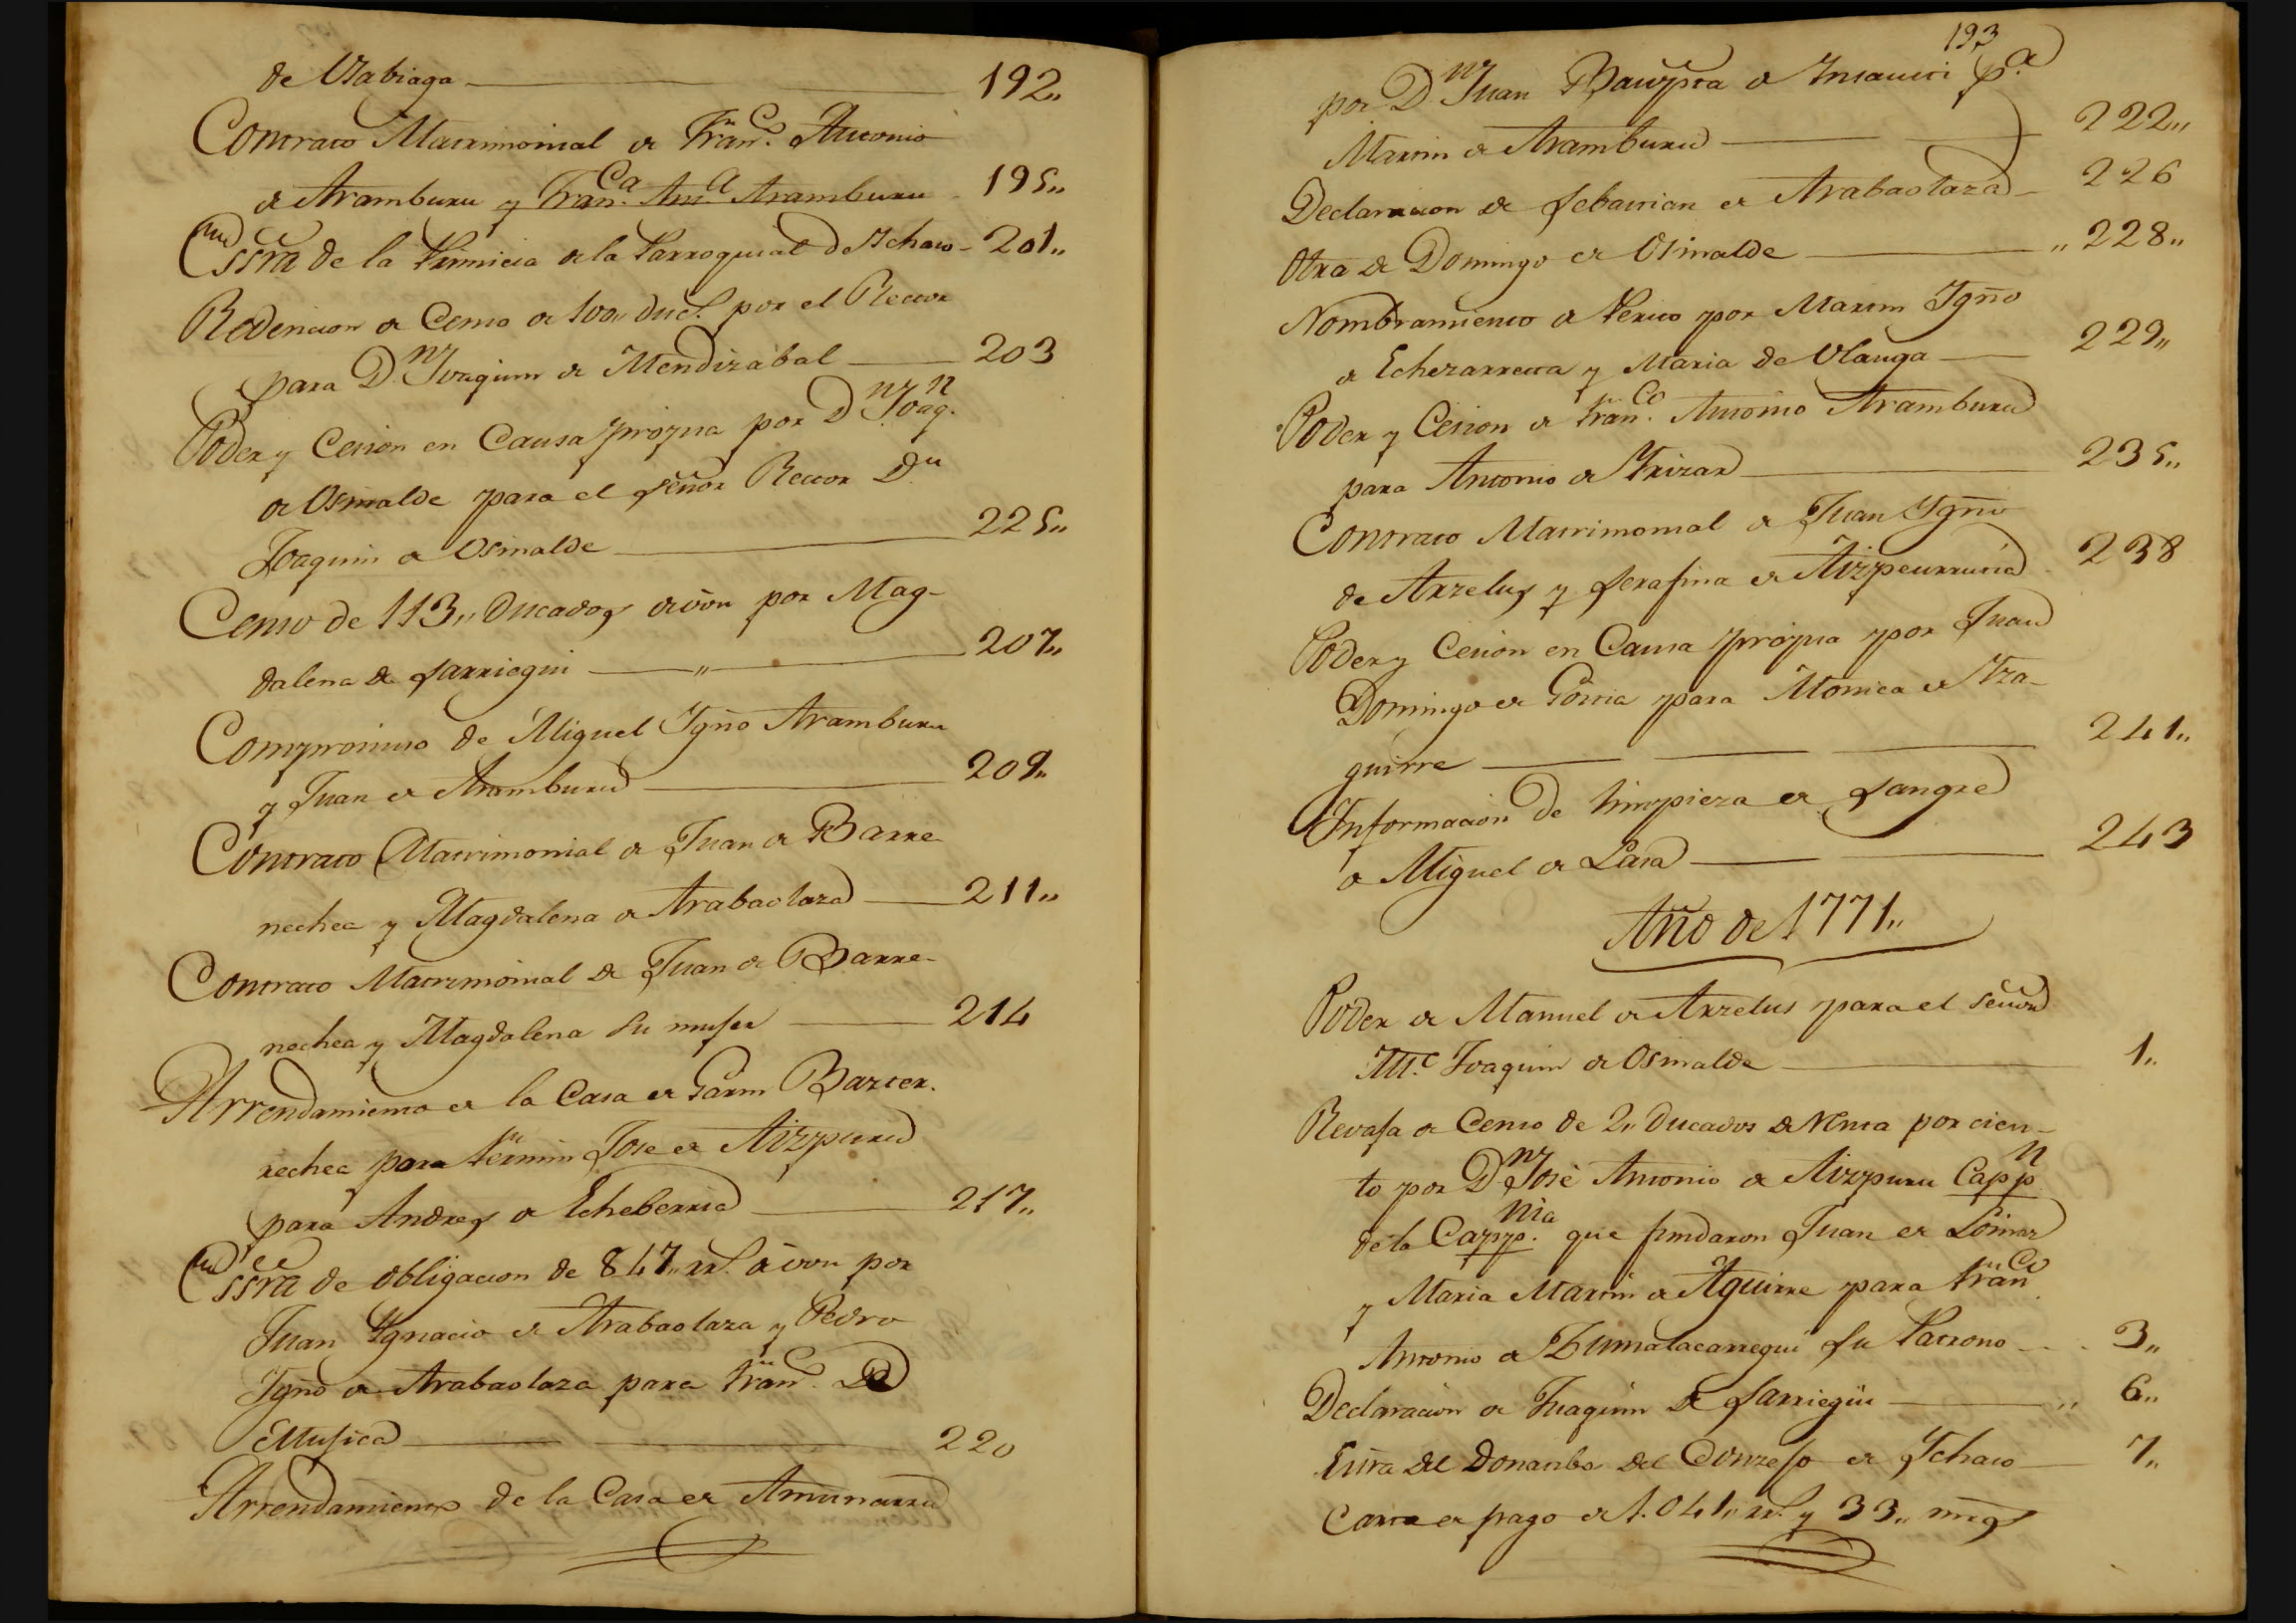 de Usabiaga 192,,
Contrato Matrimonial de Fran.co Antonio
de Aramburu y Fran.ca Ant.a Aramburu 195,,
Essra de la Primicia de la Parroquial de Ychaso 201,,
Redencion de Censo de 100,, Duc.s por el Rector
para D.n Joaquin de Mendizabal 203
Poder y Cesion en Causa propia por D.n Joaq.n
de Osinalde para el señor Rector D.n
Joaquin de Osinalde 225,,
Censo de 113,, Ducados de von por Mag-
dalena de Sarriegui 207,,
Compromiso de Miguel Ygño Aramburu
y Juan de Aramburu 209,,
Contrato Matrimonial de Juan de Barre
nechea y Magdalena de Arabaolaza 211,,
Contrato Matrimonial de Juan de Barre-
nechea y Magdalena su muger 214
Arrendamiento de la Casa de Garin Barren.
rechea para Fermin Jose de Aizpuru
para Andres de Echeberria 217,,
Essra de obligacion de 847,, rr.s de von por
Juan Ygnacio de Arabaolaza y Pedro
Ygño de Arabaolaza para Fran.co de
Mugica 220
Arrendamiento de la Casa de Amunarru
193
por D.n Juan Baupta de Insausti p.a
Martin de Aramburu 222,,
Declaracion de Sebastian de Arabaolaza 226
Otra de Domingo de Osinalde ,, 228,,
Nombramiento de Perito por Martin Ygño
de Echezarreta y Maria de Olauga 229,,
Poder y Cesion de Fran.co Antonio Aramburu
para Antonio de Yrizar 235,,
Contrato Matrimonial de Juan Ygño
de Arzelus y Serafina de Aizpeurrutia 238
Poder y Cesion en Causa propia por Juan
Domingo de Goiria para Monica de Yza-
guirre 241,,
Informacion de limpieza de sangre
de Miguel de Lasa 243
Año de 1771,,
Poder de Manuel de Arzelus para el señor
Joaquin de Osinalde 1,,
Revaja de Censo de 2,, Ducados de Renta por cien-
to por D.n José Antonio de Aizpuru Capp.n
de la Capp.nia que fundaron Juan de Loinaz
y Maria Martin de Aguirre para Fran.co
Antonio de Zumalacarregui su Patrono 3,,
Declaracion de Juaquin de Sarriegui ,, 6,,
Essra del Donatibo del Conzejo de Ychaso 7,,
Carta de pago de 1.041,, rr.s y 33,, mrs